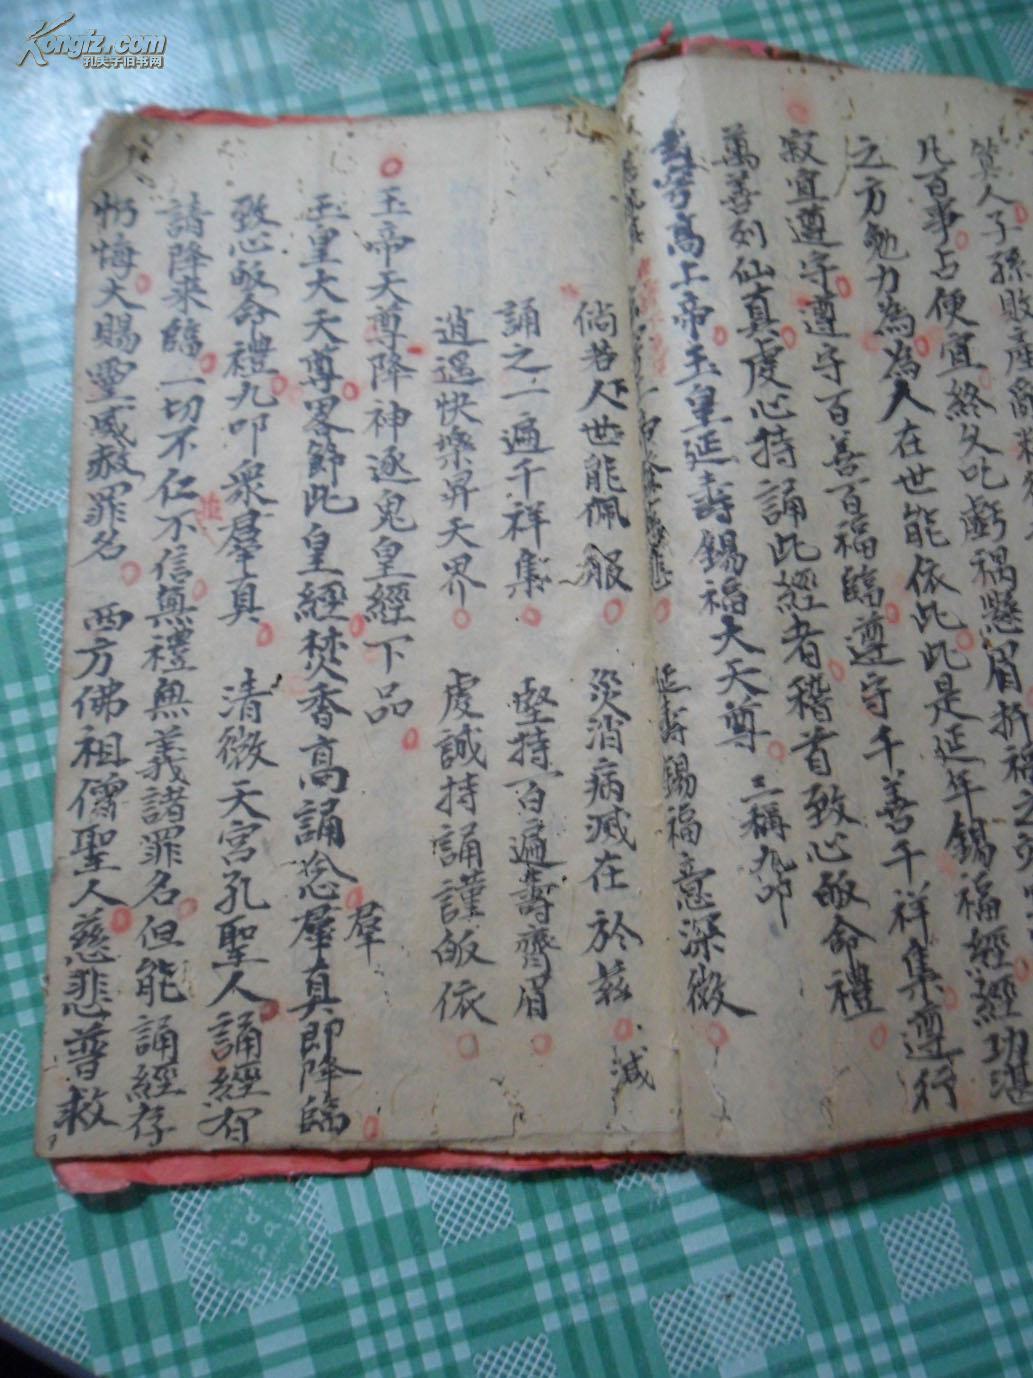 算人子孫敗産
凡百事占便宜終久吃虧禍懸眉折福之
之方勉力為為人在世能依此此是延年錫福經經功湛
寂宜遵守遵守百善百福臨遵守千善千祥集遵行
萬善列仙真虔心持誦此經者稽首致心皈命禮
穹高上帝玉皇延壽錫福大天尊 三稱九叩
延壽錫福意深微
倘若人世能佩服 災消病減在於茲 減
誦之一遍千祥集 堅持百遍壽齊眉
逍遥快樂昇天界 虔誠持誦謹皈依
玉帝天尊降神逐鬼皇經下品
玉皇大天尊畧節此皇經焚香高誦念羣真即降臨
羣
致心皈命禮九叩衆羣真 清微天宮孔聖人誦經有
請降来臨一切不仁不信無禮無義諸罪名但能誦經存
懺悔大賜靈威赦罪名 西方佛祖儒聖人慈悲普救
Kongfz.com
孔夫子旧书网